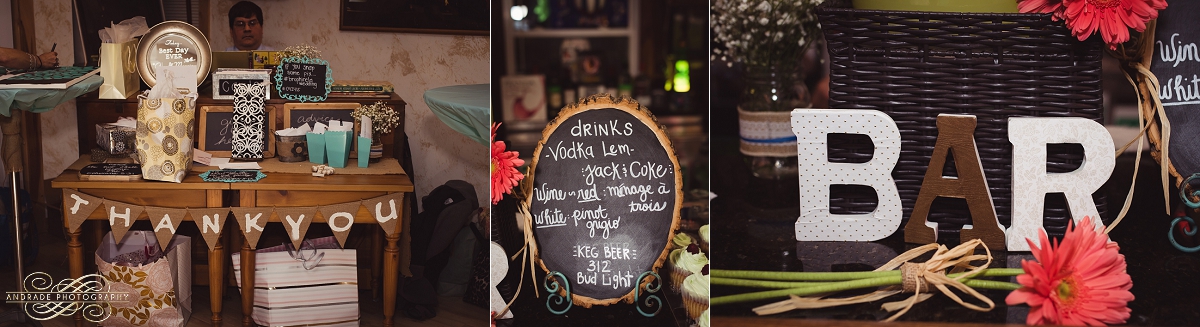 Today
Best Day
EVER
if you snap
some pix...
advice
THANK YOU
ANDRADE PHOTOGRAPHY
DRINKS
-Vodka Lem-
:Jack & Coke:
Wine ~ red: ménage à
trois
White: pinot
grigio
:KEG BEER:
312
Bud Light
R
BAR
Wine
White